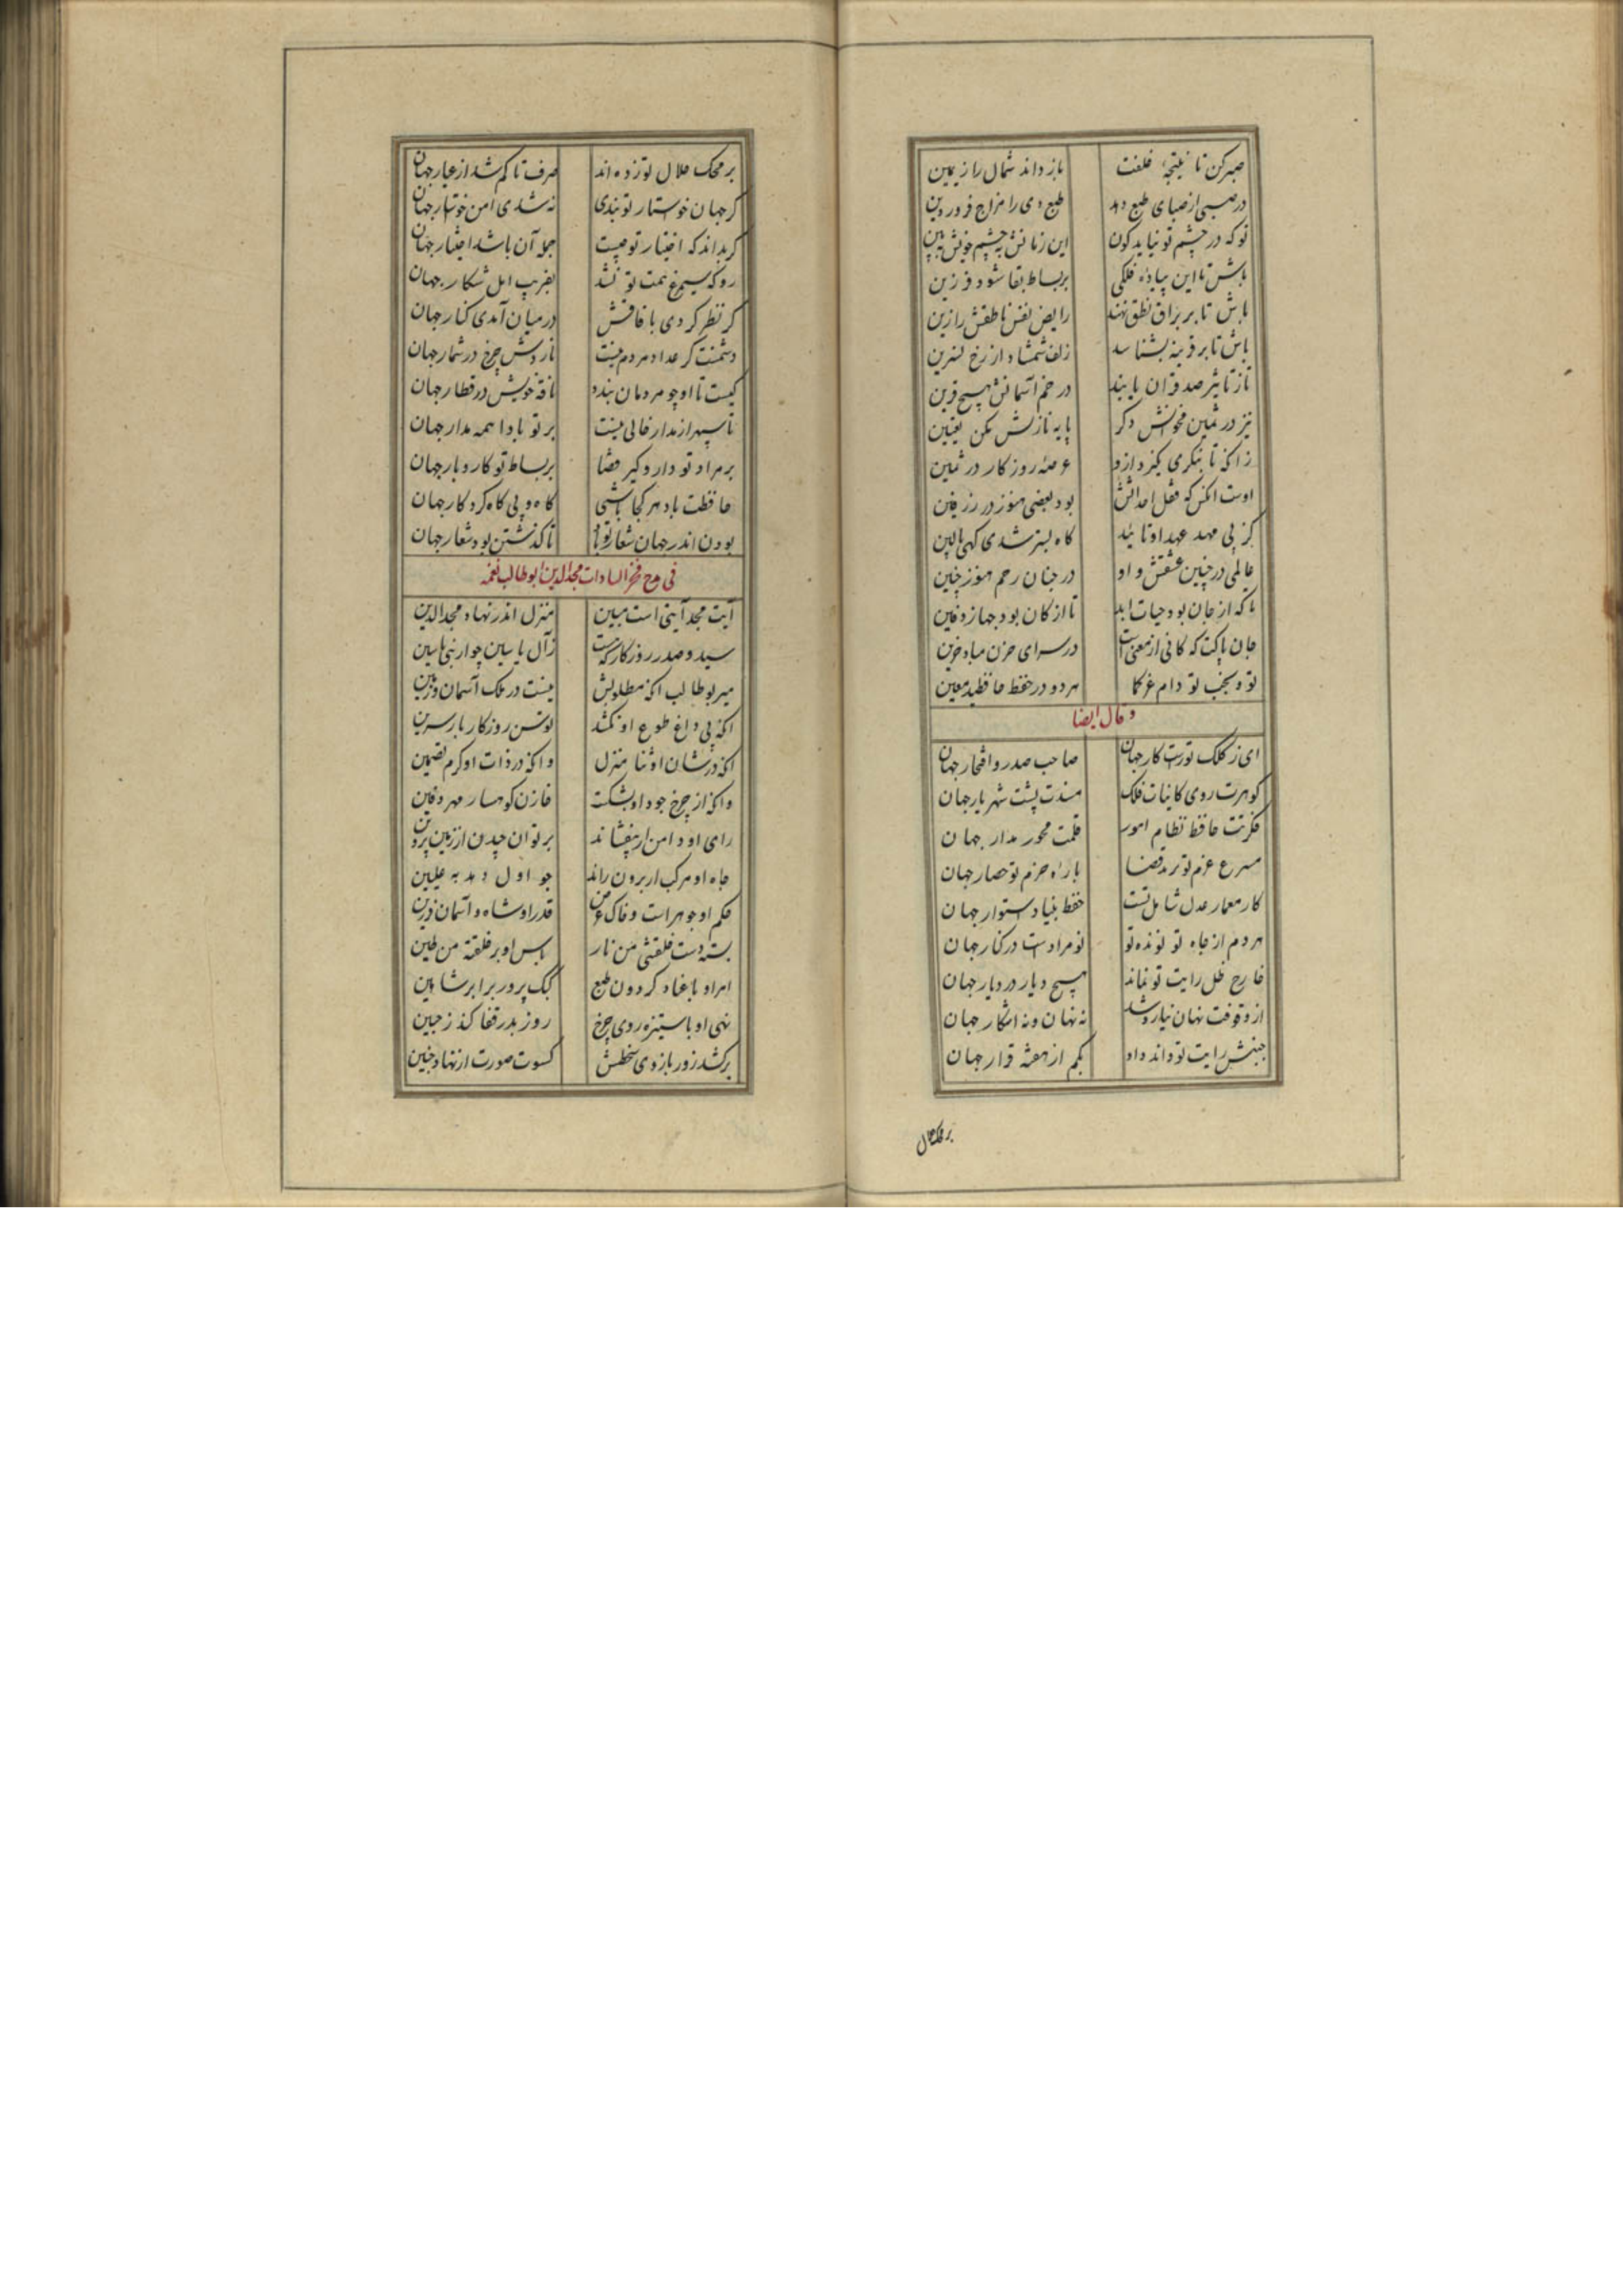 صبر کن تا نتیجهٔ خلفت باز داند شمال را ز یمین
در صبی از صبای طبع دهد طبع دی را مزاج فروردین
تو که در چشم تو نیاید کون این زمانش به چشم خویش ببین
باش تا این پیاده فلکی بر بساط بقا شود فرزین
باش تا بر براق نطق نهند رایض نفس ناطقش را زین
باش تا بر قرینه بشناسد زلف شمشاد از رخ نسرین
تاز تاثیر صد قران یابند در خم آسمانش هیچ قرین
نیز در ثمین مخوانش دگر پایه نازلش مکن تعیین
زانکه تا بنگری بگیرد ازو عرصه روزگار در ثمین
اوست آنکس که قفل احداثش بود بعضی هنوز در زرفین
کز پی مهد عهد او تایید گاه بستر شدی گهی بالین
عالمی در چنین عشقش و او در جنان رحم هنوز جنین
تا که از جان بود حیات ابد تا از کان بود جهاز دفین
جان پاکت که کانی از معنی است در سرای حزن مباد حزین
تو و منجب تو دام عزکما هر دو در حفظ حافظ و معین
و قال ایضا
ای ز کلک تو راست کار جهان صاحب صدر و افتخار جهان
گوهرت روی کاینات فلک مسندت پشت شهریار جهان
فکرتت حافظ نظام امور قلمت محور مدار جهان
مسرع عزم تو برید قضا باره حزم تو حصار جهان
کار معمار عدل شامل تست حفظ بنیاد استوار جهان
هر دم از جاه تو نو نده تو نو مرادست در کنار جهان
خارج ظل رایت تو نماند هیچ دیار در دیار جهان
از وقوفت نهان نیارد شد نه نهان و نه آشکار جهان
جنبش رایت تو داند داد بکم از هفته قرار جهان
بر محک
بر محک جلال تو زده‌اند صرف تا کم شد از عیار جهان
گر جهان خواستار تو نبدی نه شدی امن خواستار جهان
گر بداند که اختیار تو چیست جمله آن باشد اختیار جهان
رو که سیمرغ همت تو نشد بفریب امل شکار جهان
گر نظر کردی بافاقش در میان آمدی کنار جهان
دشمنت گر عداد مردم نیست ناردش چرخ در شمار جهان
کیست تا او چو مردمان بندد ناقه خویش در قطار جهان
تا سپهر از مدار خالی نیست بر تو بادا همه مدار جهان
بر مراد تو دار و گیر قضا بر بساط تو کار و بار جهان
حافظت باد هر کجا باشی گاه و بی گاه کردگار جهان
بودن اندر جهان شعار تو باد تا گذشتن بود شعار جهان
فی مدح فخر السادات مجد الدین ابو طالب نعمه
آیت مجد آیتی است مبین منزل اندر نهاد مجد الدین
سید و صدر روزگار که هست ز آل یاسین چو از نبی یاسین
میر بو طالب آنکه مطلوبش نیست در ملک آسمان و زمین
آنکه بی داغ طوع او نکشد توسن روزگار بار سرین
آنکه در شان او ثنا منزل وانکه در ذات او کرم تضمین
وانکه از چرخ جود او بشکست خازن کوهسار مهر دفین
رای او دامن ار بیفشاند بر توان چیدن از زمین پروین
جاه او مرکب ار برون راند جو اول دهد به علیین
حکم او جوهر است و خاک عرض قدر او شاه و آسمان فرزین
بسته دست خلقتی من نار باس او بر خلقته من طین
امر او با عناد گردون طبع کبک پرور برابر شاهین
نهی او با ستیزه روی چرخ روز بد در قفا کند ز جبین
برکشد زور بازوی سخطش کسوت صورت از نهاد جنین